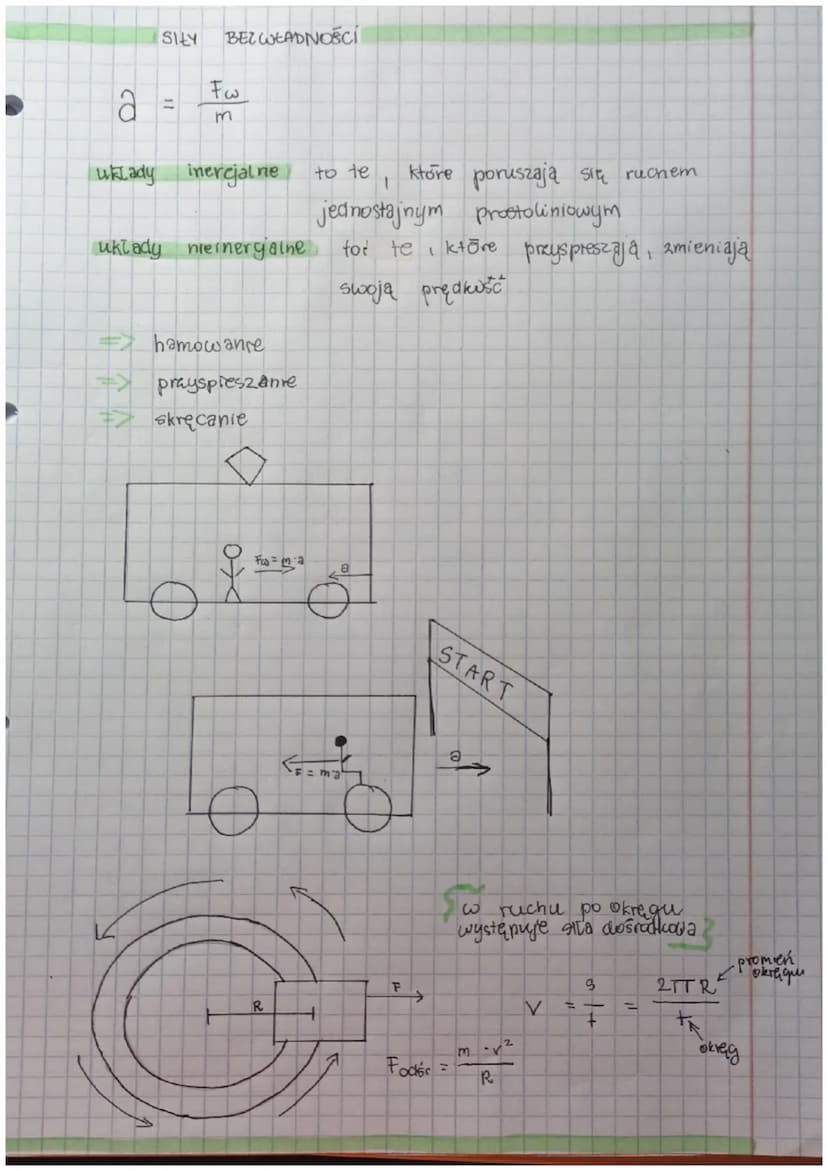 SIŁY BEZWŁADNOŚCI
a = Fω / m
układy inercjalne to te, które poruszają się ruchem
jednostajnym prostoliniowym
układy nieinercjalne to te, które przyspieszają, zmieniają
swoją prędkość
=> hamowanie
=> przyspieszanie
=> skręcanie
Fω = m·a
a
START
a
F = m·a
w ruchu po okręgu
występuje siła dośrodkowa
promień
okręgu
F
R
V = s/t = 2πR/t
okręg
Fodśr = m·v²/R